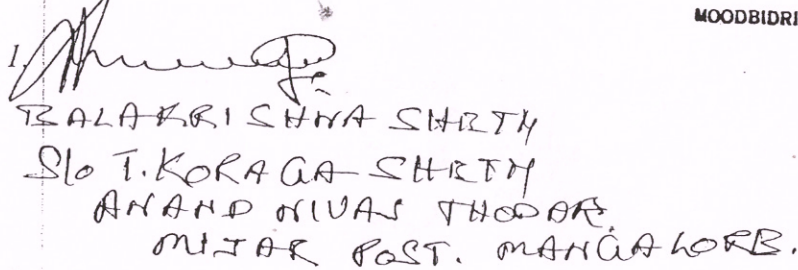 MOODBIDRI
1.
BALAKRISHNA SHETTY
S/o T. KORAGA SHETTY
ANAND NIVAS THODAR.
MIJAR POST. MANGALORE.